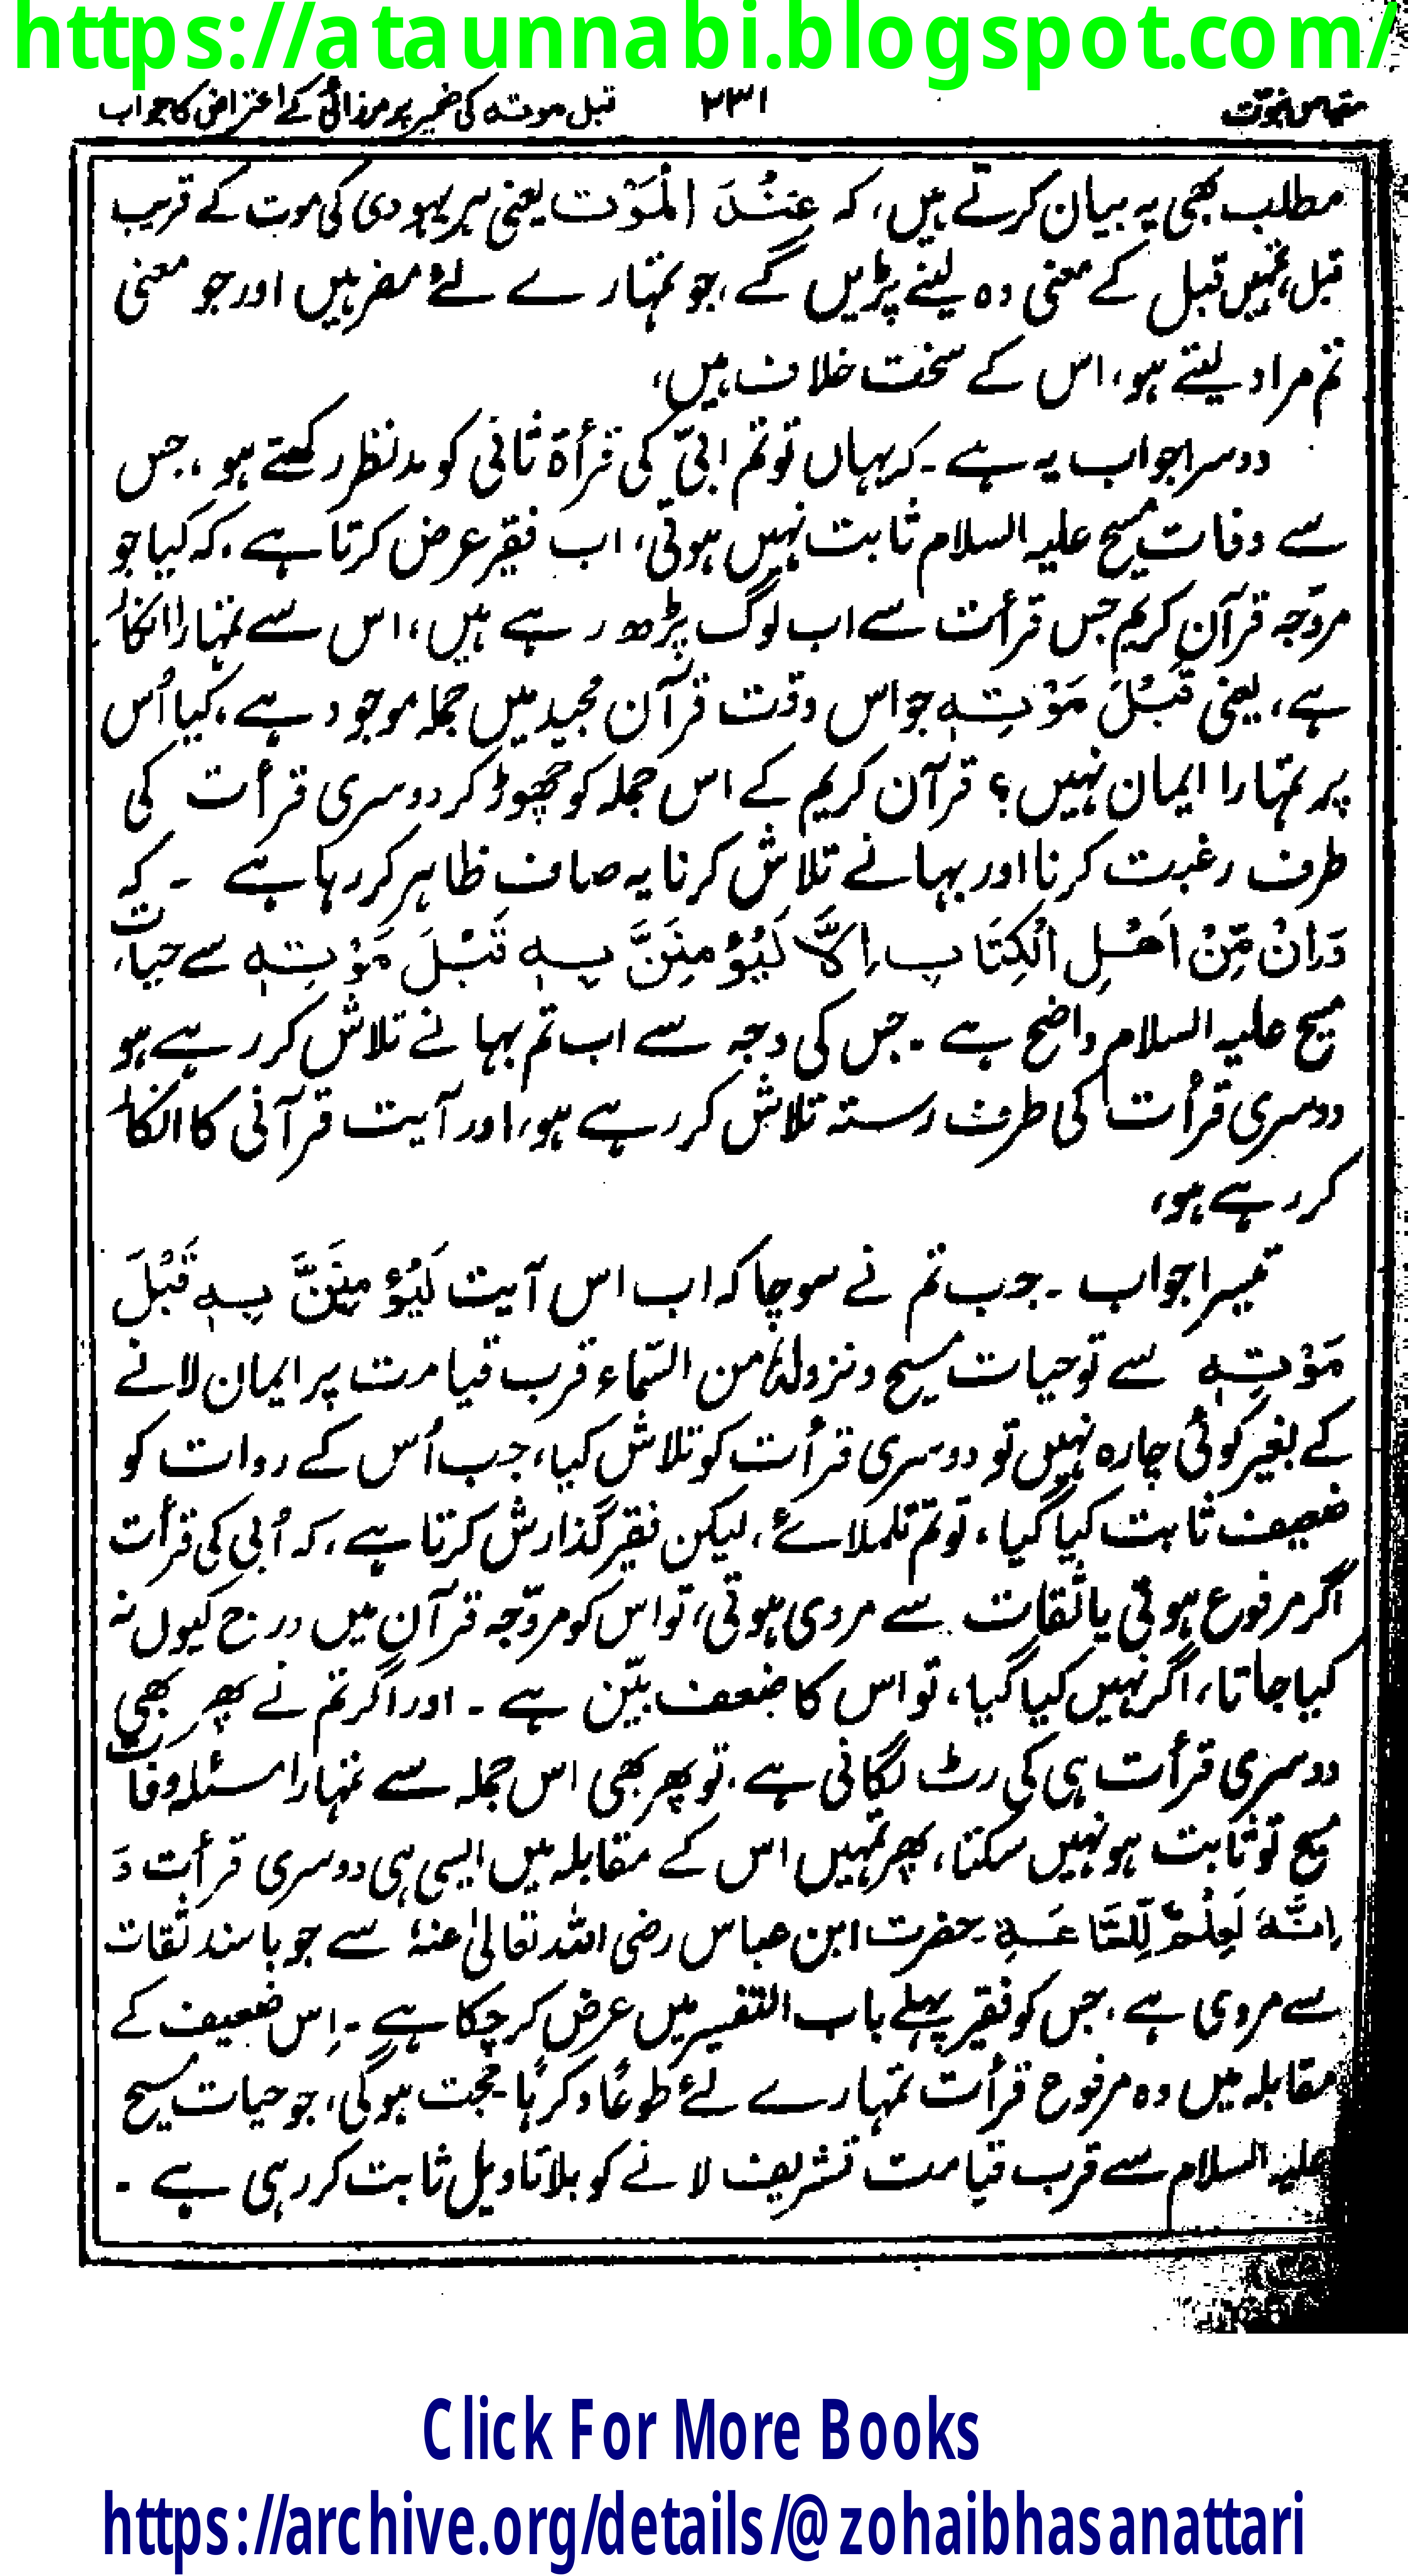 https://ataunnabi.blogspot.com/
مقیاس نبوت ۳۳۱ قبل موتہ کی ضمیر پر مرزائی کے اعتراض کا جواب
مطلب بھی یہ بیان کرتے ہیں، کہ عِنْدَ الْمَوْت یعنی ہر یہودی کی موت کے قریب
قبل، تمہیں قبل کے معنی وہ لینے پڑیں گے، جو تمہارے لئے مضر ہیں اور جو معنی
تم مراد لیتے ہو، اس کے سخت خلاف ہیں،
دوسرا جواب یہ ہے۔ کہ یہاں تو تم ابیّ کی قرأۃ ثانی کو مدنظر رکھتے ہو، جس
سے وفات مسیح علیہ السلام ثابت نہیں ہوتی، اب فقیر عرض کرتا ہے، کہ کیا جو
مروّجہ قرآن کریم جس قرأت سے اب لوگ پڑھ رہے ہیں، اس سے تمہارا انکار
ہے، یعنی قَبْلَ مَوْتِہٖ جو اس وقت قرآن مجید میں جملہ موجود ہے، کیا اُس
پر تمہارا ایمان نہیں؟ قرآن کریم کے اس جملہ کو چھوڑ کر دوسری قرأت کی
طرف رغبت کرنا اور بہانے تلاش کرنا یہ صاف ظاہر کر رہا ہے ۔ کہ
وَاِنْ مِّنْ اَھْلِ الْکِتَابِ اِلَّا لَیُؤْمِنَنَّ بِہٖ قَبْلَ مَوْتِہٖ سے حیات
مسیح علیہ السلام واضح ہے ۔ جس کی وجہ سے اب تم بہانے تلاش کر رہے ہو
دوسری قرأت کی طرف رستہ تلاش کر رہے ہو، اور آیت قرآنی کا انکار
کر رہے ہو،
تیسرا جواب ۔ جب تم نے سوچا کہ اب اس آیت لَیُؤْمِنَنَّ بِہٖ قَبْلَ
مَوْتِہٖ سے تو حیات مسیح و نزولہٖ من السّماء قرب قیامت پر ایمان لانے
کے بغیر کوئی چارہ نہیں تو دوسری قرأت کو تلاش کیا، جب اُس کے روات کو
ضعیف ثابت کیا گیا، تو تم تلملائے، لیکن فقیر گذارش کرتا ہے، کہ اُبی کی قرأت
اگر مرفوع ہوتی یا ثقات سے مروی ہوتی، تو اس کو مروّجہ قرآن میں درج کیوں نہ
کیا جاتا، اگر نہیں کیا گیا، تو اس کا ضعف بیّن ہے ۔ اور اگر تم نے پھر بھی
دوسری قرأت ہی کی رٹ لگانی ہے، تو پھر بھی اس جملہ سے تمہارا مسئلہ وفات
مسیح تو ثابت ہو نہیں سکتا، پھر تمہیں اس کے مقابلہ میں ایسی ہی دوسری قرأت وَ
اِنَّہٗ لَعِلْمٌ لِّلسَّاعَۃِ حضرت ابن عباس رضی اللہ تعالیٰ عنہٗ سے جو باسند ثقات
سے مروی ہے، جس کو فقیر پہلے باب التفسیر میں عرض کر چکا ہے ۔ اِس ضعیف کے
مقابلہ میں وہ مرفوع قرأت تمہارے لئے طوعًا و کرہًا حجت ہو گی، جو حیات مسیح
علیہ السلام سے قرب قیامت تشریف لانے کو بلا تاویل ثابت کر رہی ہے ۔
Click For More Books
https://archive.org/details/@zohaibhasanattari